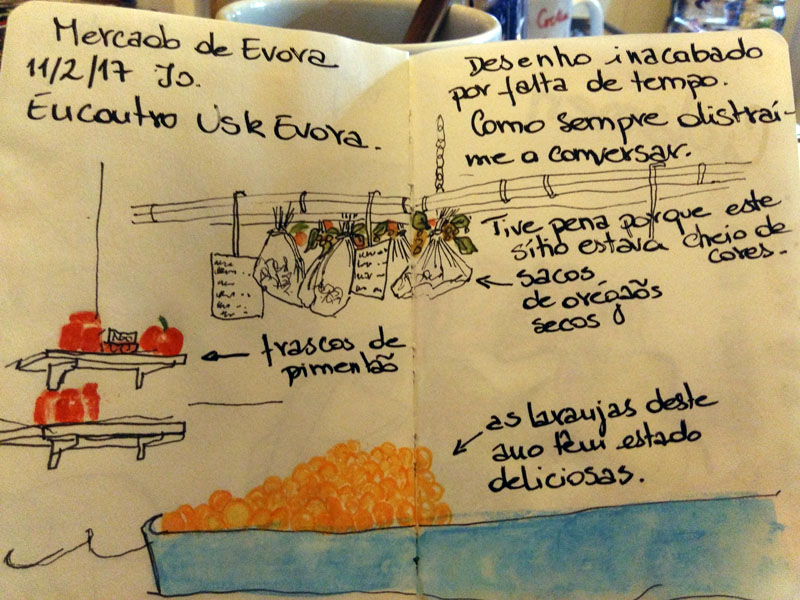 Mercado de Evora
11/2/17 Jo.
Encontro Usk Evora.
Desenho inacabado
por falta de tempo.
Como sempre distraí-
me a conversar.
Tive pena porque este
sítio estava cheio de
cores.
sacos
de orégãos
secos
frascos de
pimentão
as laranjas deste
ano têm estado
deliciosas.